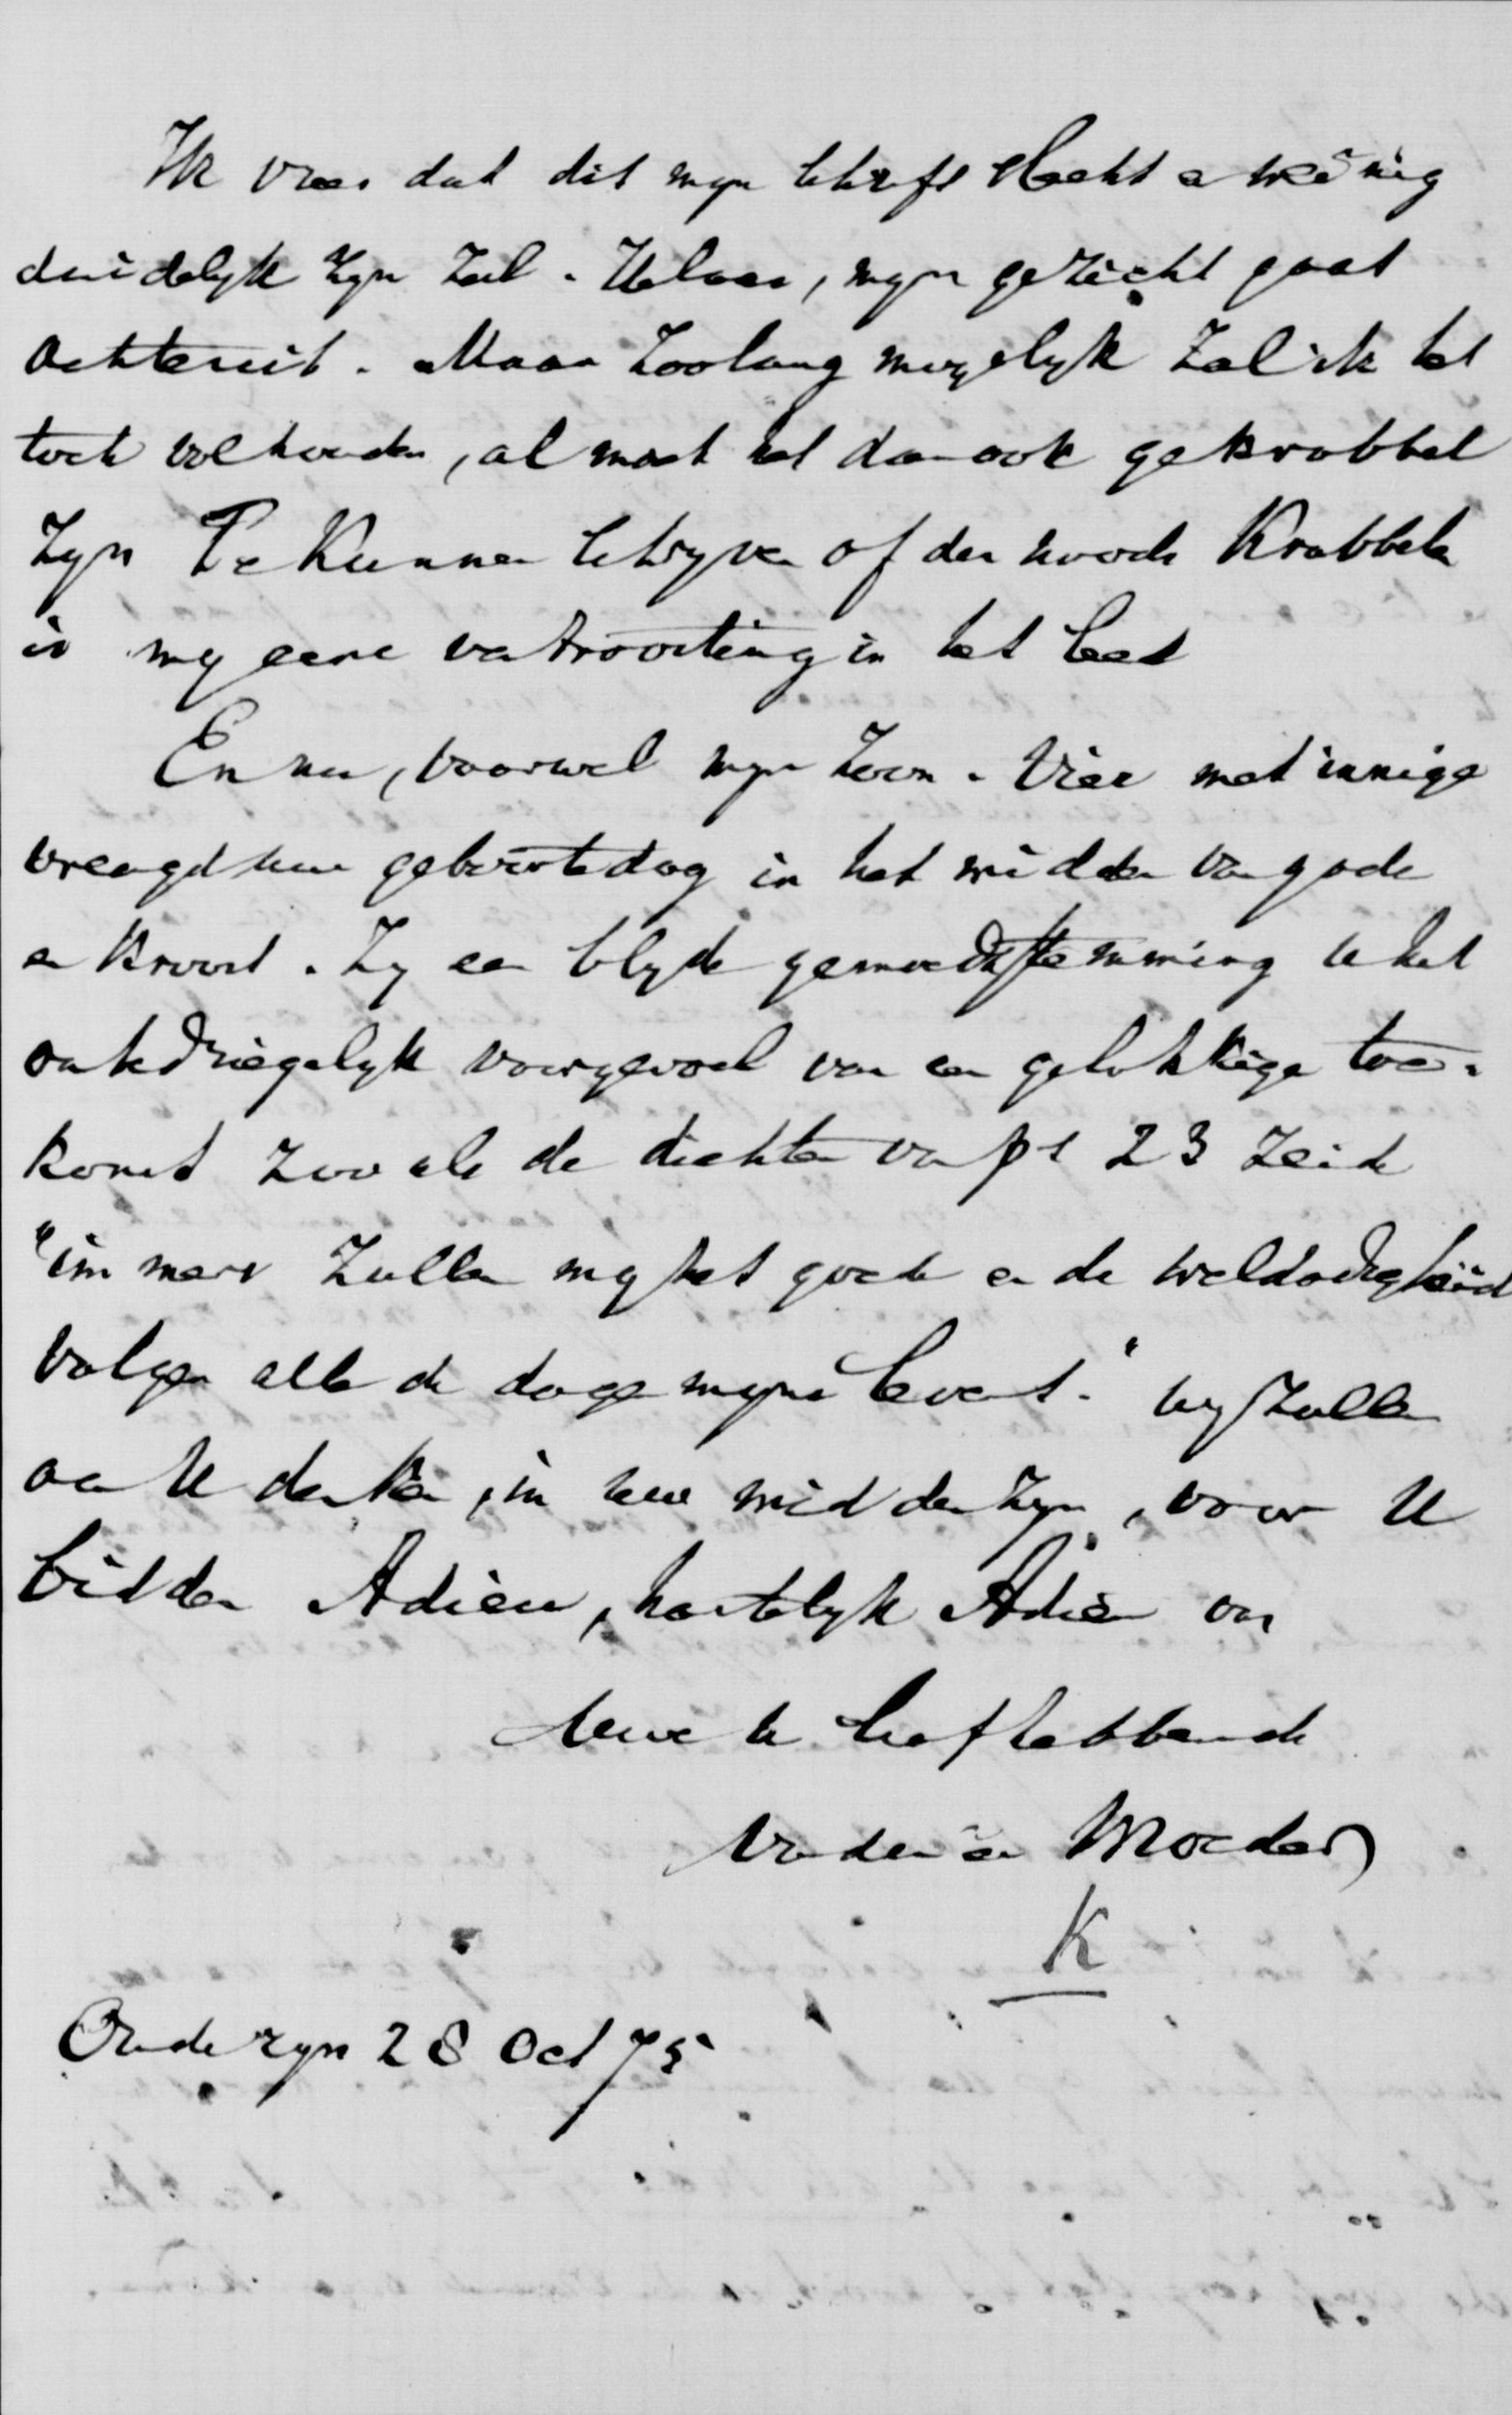 Ik vrees dat dit myn schrift slecht en weinig
duidelyk zyn zal. Helaas, myn gezicht gaat
achteruit. Maar zoolang mogelyk zal ik het
toch volhouden, al moet het dan ook gekrabbel
zyn Te kunnen schryven of den noode krabbelen
is my eene vertroosting in het leed
En nu, vaarwel myn Zoon. Vier met innige
vreugd uw geboortedag in het midden van gade
en kroost. Zy een blyde gemoedsstemming U het
onbedriegelyk voorgevoel van een gelukkige toe-
komst zooals de dichter van ps 23 zeide
"immers zullen my het goede en de weldadigheid
volgen alle de dagen myns levens." wy zullen
aan U denken, in uw midden zyn, voor U
bidden Adieu, hartelyk Adieu van
Uwe U liefhebbende
Vader en Moeder
K
Oude ryn 28 Oct 75